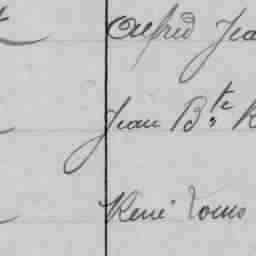 Alfred Jea
Jean Bte R
René Louis